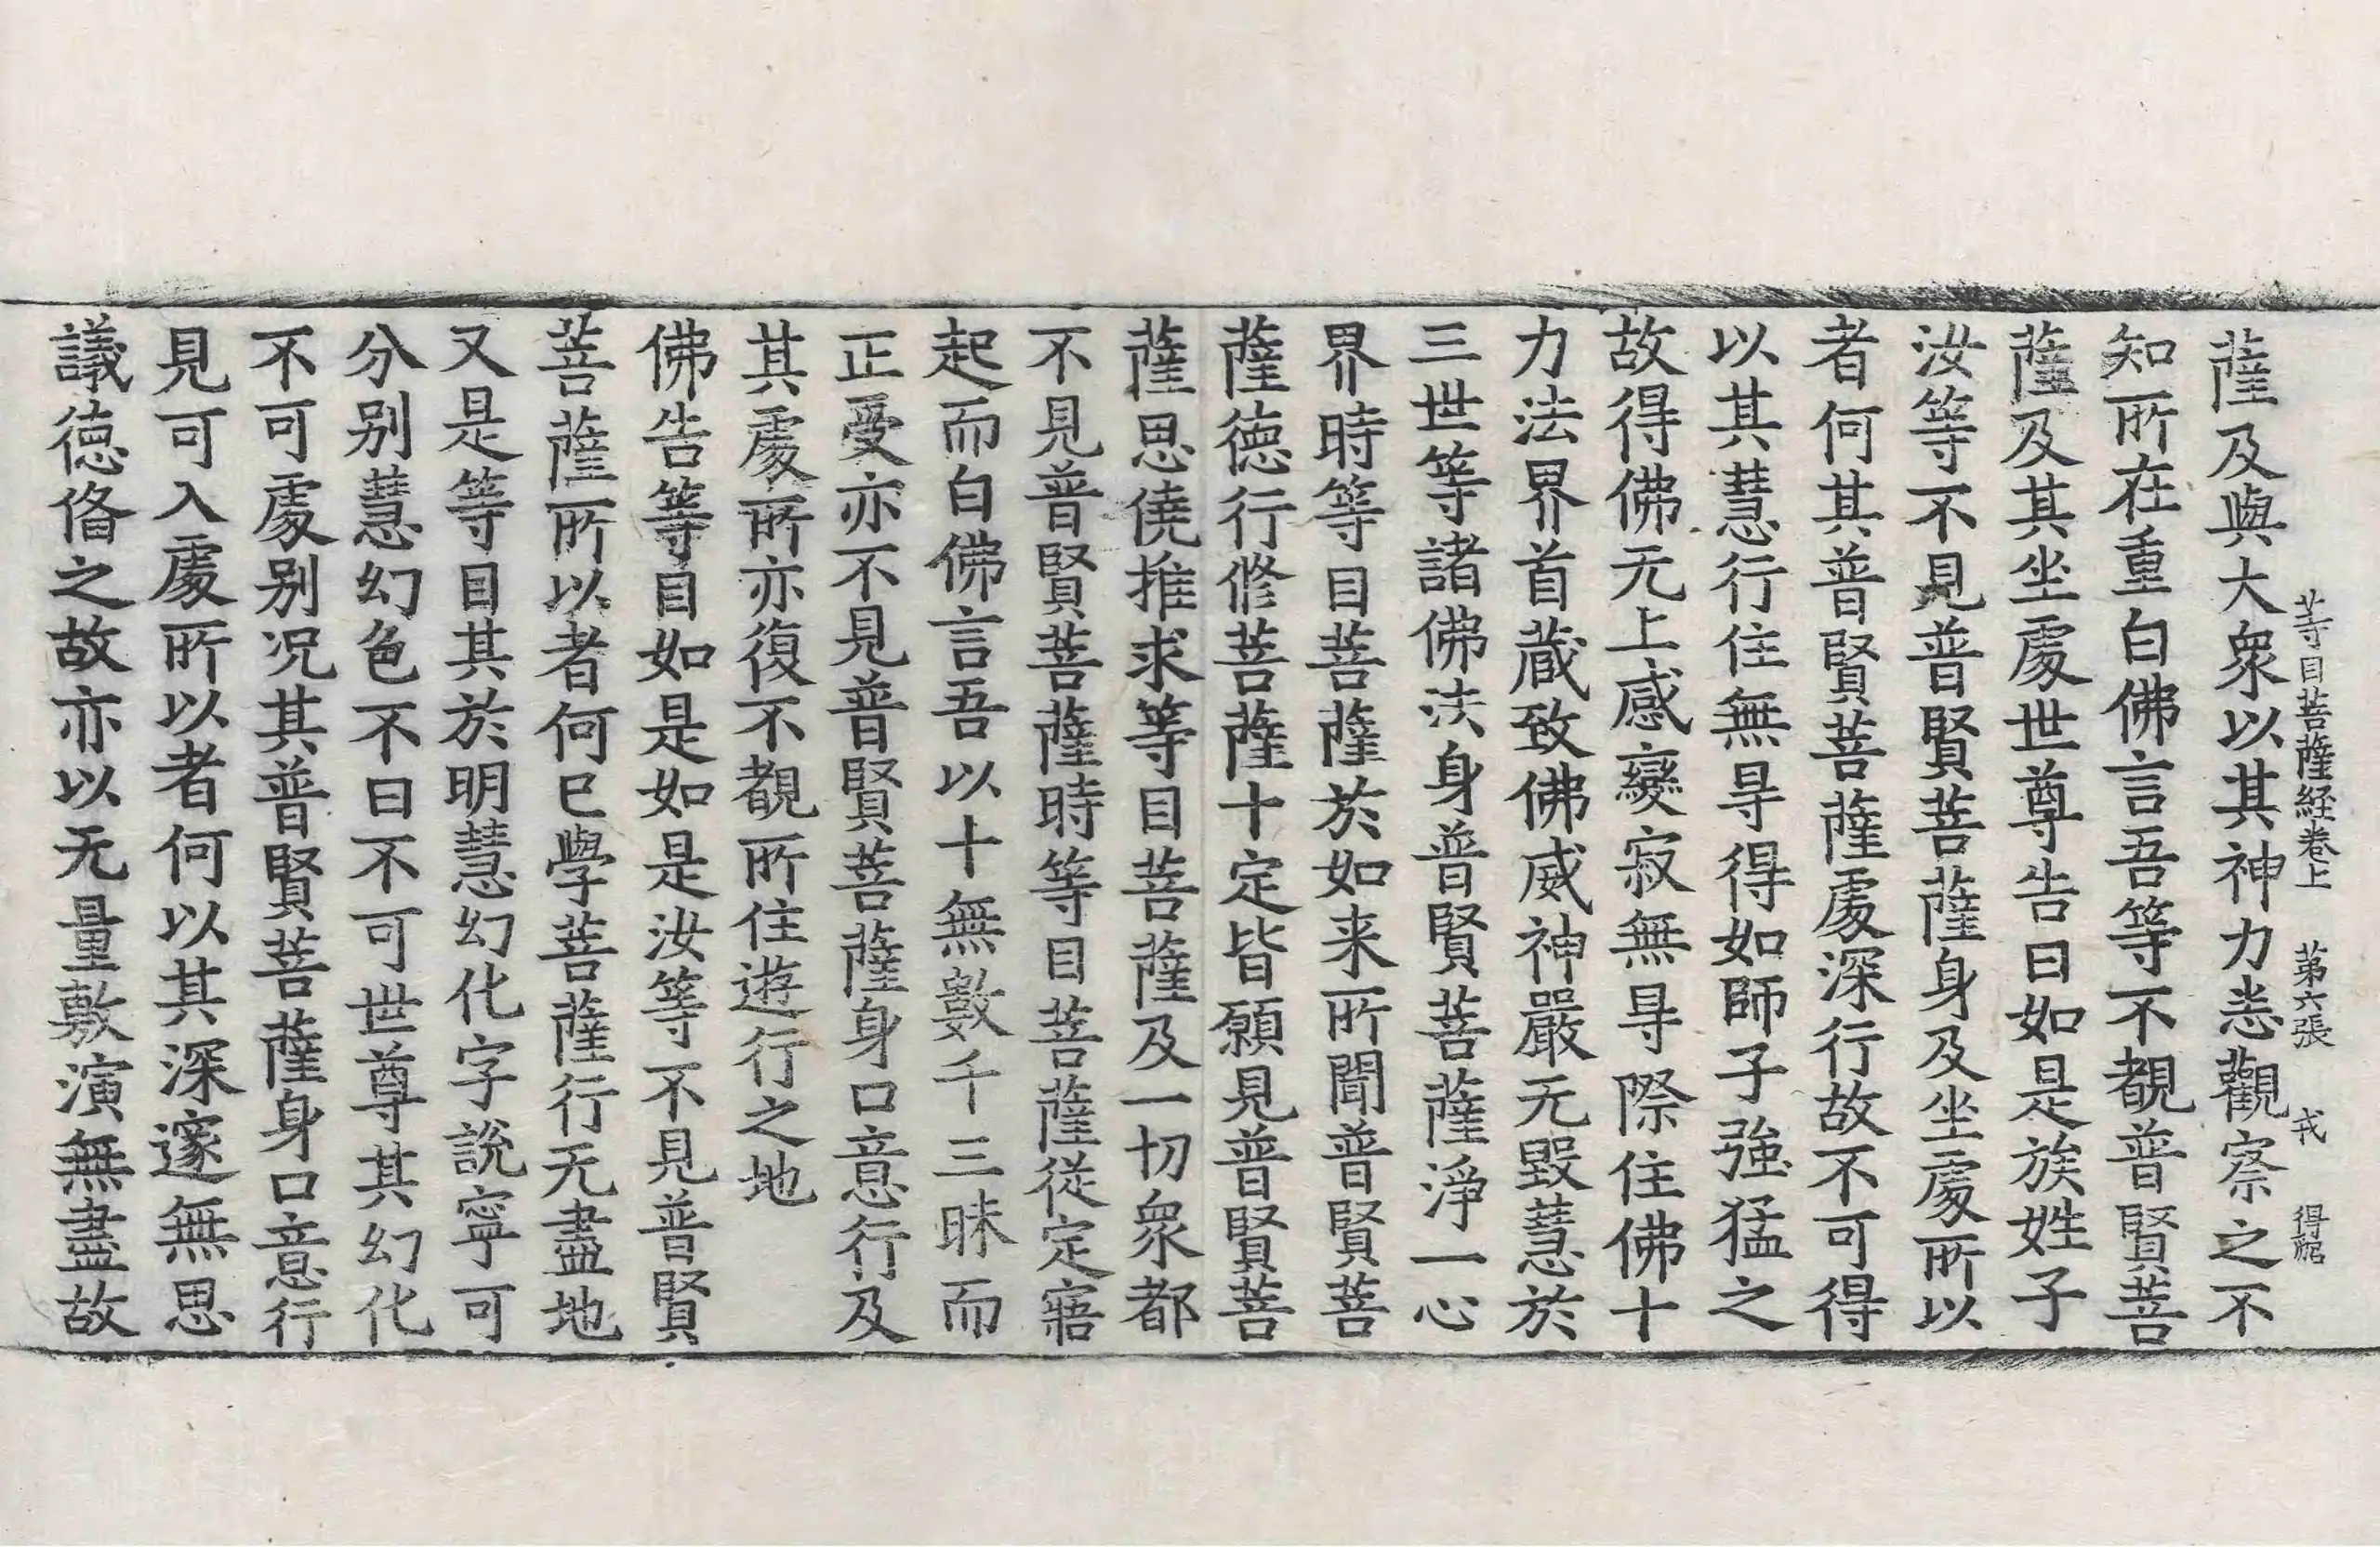 等目菩薩経卷上　第六張　戎　得糍
薩及與大衆以其神力悉觀察之不
知所在重白佛言吾等不覩普賢菩
薩及其坐處世尊告曰如是族姓子
汝等不見普賢菩薩身及坐處所以
者何其普賢菩薩處深行故不可得
以其慧行住無㝵得如師子強猛之
故得佛无上感變寂無㝵際住佛十
力法界首蔵致佛威神嚴无毀慧於
三世等諸佛法身普賢菩薩淨一心
界時等目菩薩於如来所聞普賢菩
薩德行修菩薩十定皆願見普賢菩
薩思僥推求等目菩薩及一切衆都
不見普賢菩薩時等目菩薩從定寤
起而白佛言吾以十無數千三昧而
正受亦不見普賢菩薩身口意行及
其處所亦復不覩所住遊行之地
佛告等目如是如是汝等不見普賢
菩薩所以者何已學菩薩行无盡地
又是等目其於明慧幻化字說寧可
分别慧幻色不曰不可世尊其幻化
不可處别况其普賢菩薩身口意行
見可入處所以者何以其深邃無思
議德俻之故亦以无量敷演無盡故